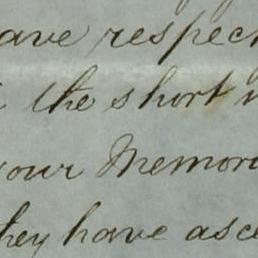 ave respec
the short
our Memori
they have asce